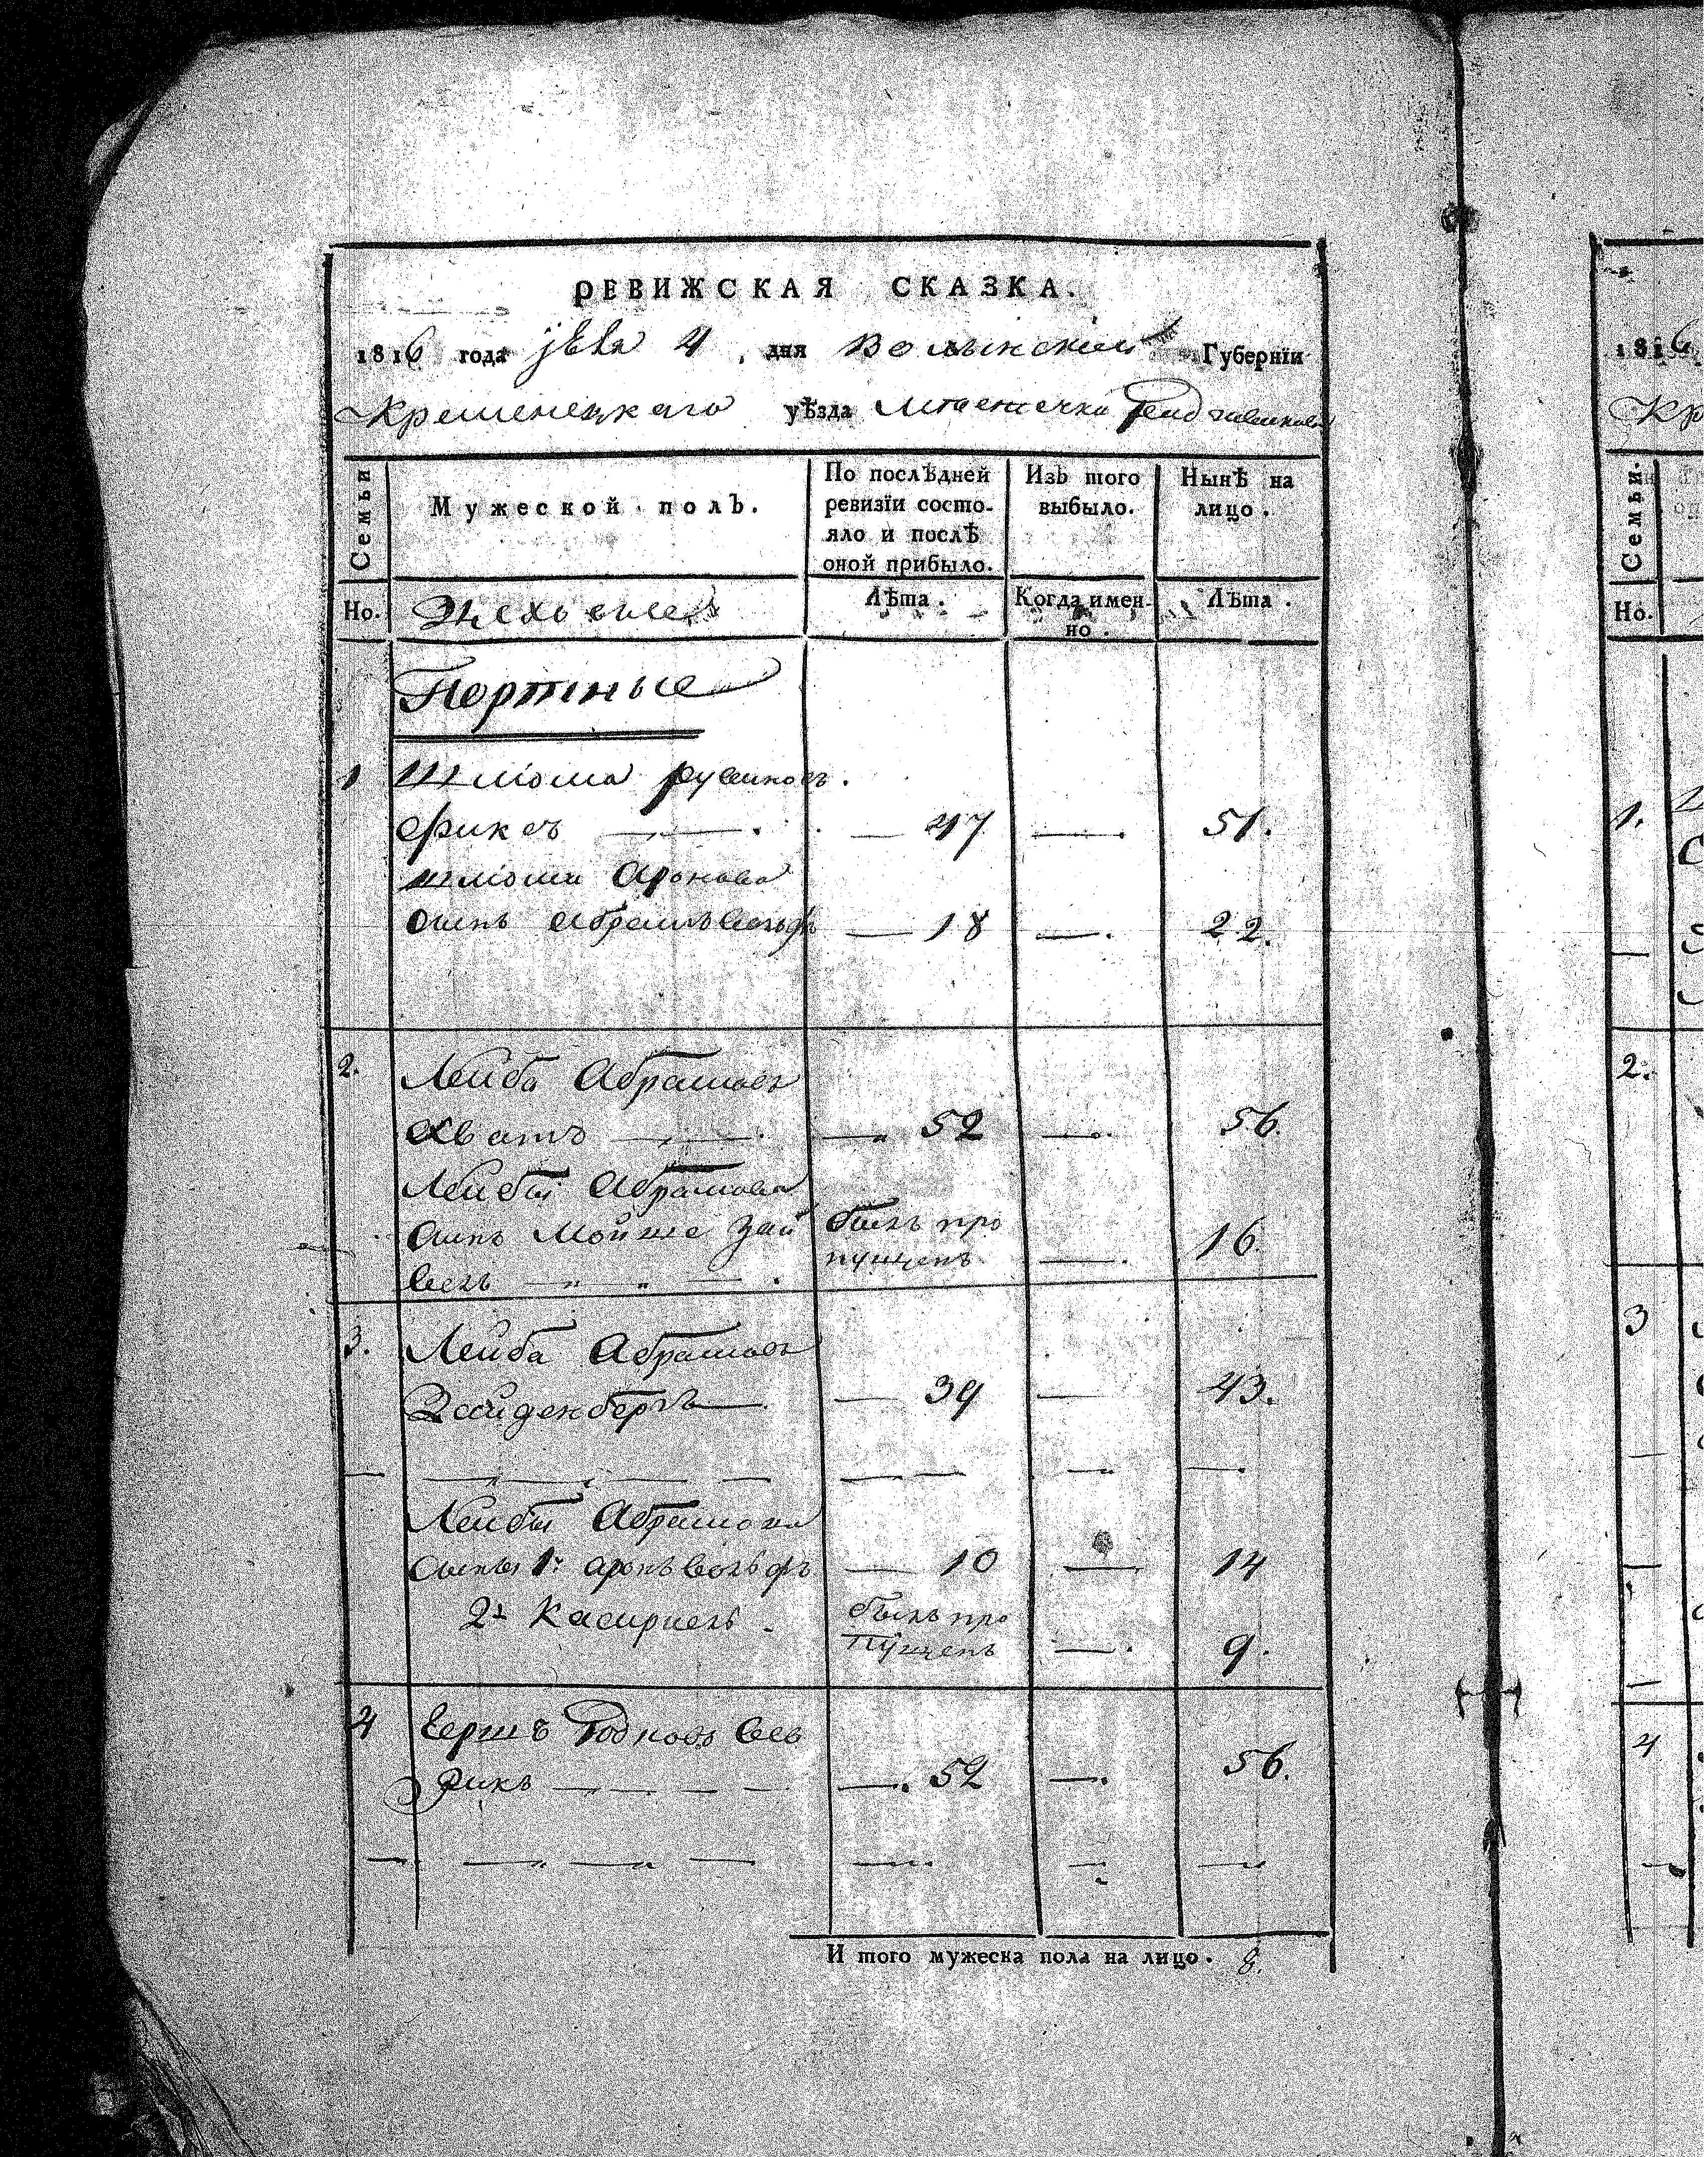 РЕВИЖСКАЯ СКАЗКА.
1816 года 4, дня Волынской Губернїи
Кременецкаго уѣзда Местечка
Семьи
Мужеской полъ.
По послѣдней ревизїи состояло и послѣ оной прибыло.
Изъ того выбыло.
Нынѣ на лицо.
Но.
Лѣта.
Когда именно.
Лѣта.
Портные
1 Шліома
Фиксъ — 47 — 51.
Шліоми Аронова
сынъ Абрамъ Вольфъ — 18 — 22.
2. Лейба Абрамовъ
Хватъ — 52 — 56.
Лейбы Абрамова
сынъ Мойше Зай былъ про
вель пущенъ — 16.
3. Лейба Абрамовъ
Зайденбергъ — 39 — 43.
Лейбы Абрамова
сыны 1й Аронъ Вольфъ — 10 — 14
2й Касириель былъ про
пущенъ — 9.
4 Гершъ
рикъ — 52 — 56.
И того мужеска пола на лицо. 8.
1816
Кр
Семьи.
Но.
1.
2.
3
4